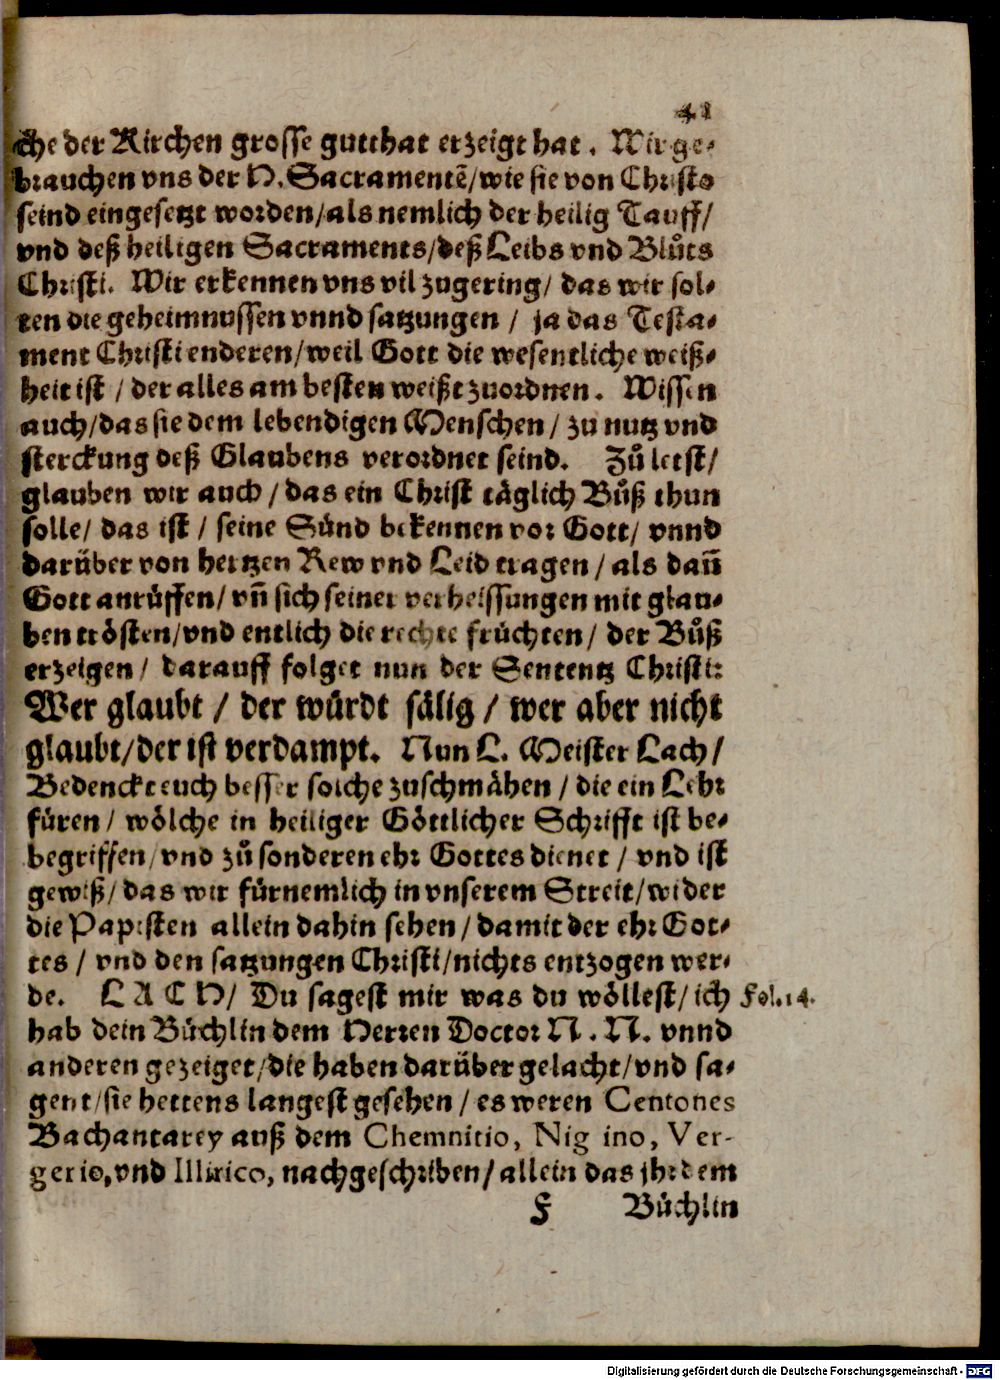 41
che der Kirchen grosse gutthat erzeigt hat. Wir ge-
brauchen vns der H. Sacramentẽ/wie sie von Christo
seind eingesetzt worden/als nemlich der heilig Tauff/
vnd deß heiligen Sacraments/deß Leibs vnd Blůts
Christi. Wir erkennen vns vil zugering/ das wir sol-
ten die geheimnussen vnnd satzungen / ja das Testa-
ment Christi enderen/weil Gott die wesentliche weiß-
heit ist / der alles am besten weißt zuordnen. Wissen
auch/das sie dem lebendigen Menschen / zu nutz vnd
sterckung deß Glaubens verordnet seind. Zů letst/
glauben wir auch / das ein Christ täglich Bůß thun
solle/ das ist / seine Sünd bekennen vor Gott/ vnnd
darüber von hertzen Rew vnd Leid tragen / als dañ
Gott anrüffen/ vñ sich seiner verheissungen mit glau-
ben trösten/vnd entlich die rechte früchten/ der Bůß
erzeigen/ darauff folget nun der Sententz Christi:
Wer glaubt / der würdt sälig / wer aber nicht
glaubt/der ist verdampt. Nun L. Meister Lach/
Bedenckt euch besser solche zuschmähen / die ein Lehr
füren/ wölche in heiliger Göttlicher Schrifft ist be-
begriffen/vnd zů sonderen ehr Gottes dienet / vnd ist
gewiß/das wir fürnemlich in vnserem Streit/wider
die Papisten allein dahin sehen / damit der ehr Got-
tes / vnd den satzungen Christi/nichts entzogen wer-
de. LACH/ Du sagest mir was du wöllest/ ich Fol.14.
hab dein Büchlin dem Herren Doctor N. N. vnnd
anderen gezeiget/die haben darüber gelacht/vnd sa-
gent/sie hettens langest gesehen / es weren Centones
Bachantarey auß dem Chemnitio, Nig ino, Ver-
gerio, vnd Illirico, nachgeschriben/allein das jhr dem
F Büchlin
Digitalisierung gefördert durch die Deutsche Forschungsgemeinschaft - DFG